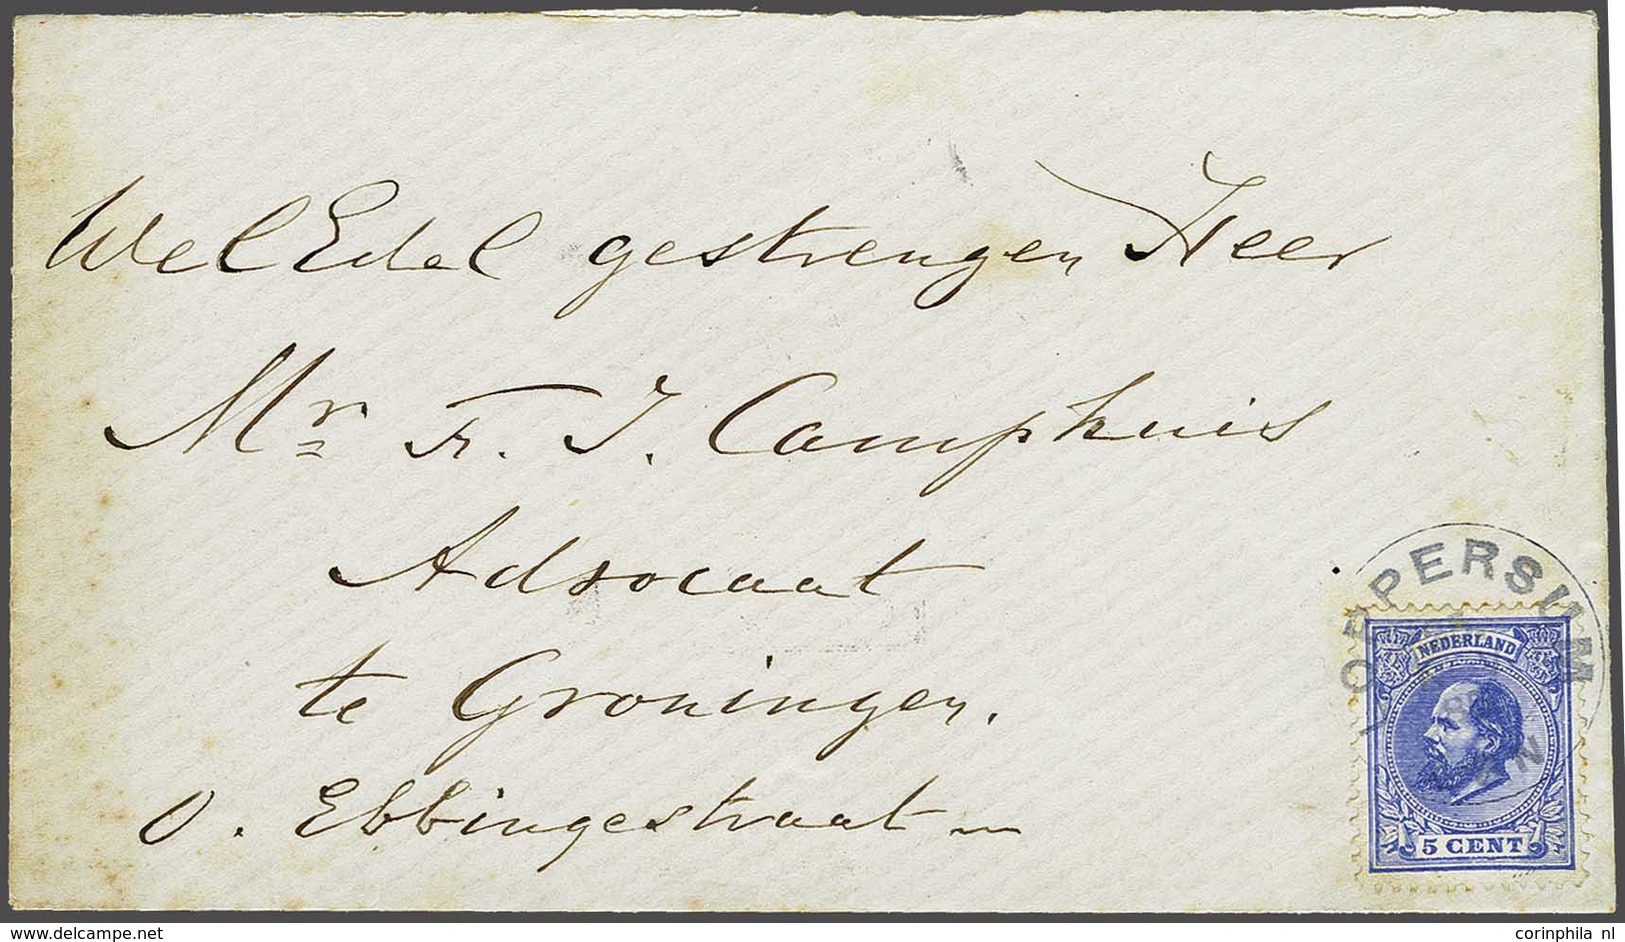 WelEdel gestrengen Heer
Mr F. J. Camphuis
Advocaat
te Groningen.
O. Ebbingestraat
OPPERSUM
NEDERLAND
5 CENT
www.delcampe.net
corinphila nl